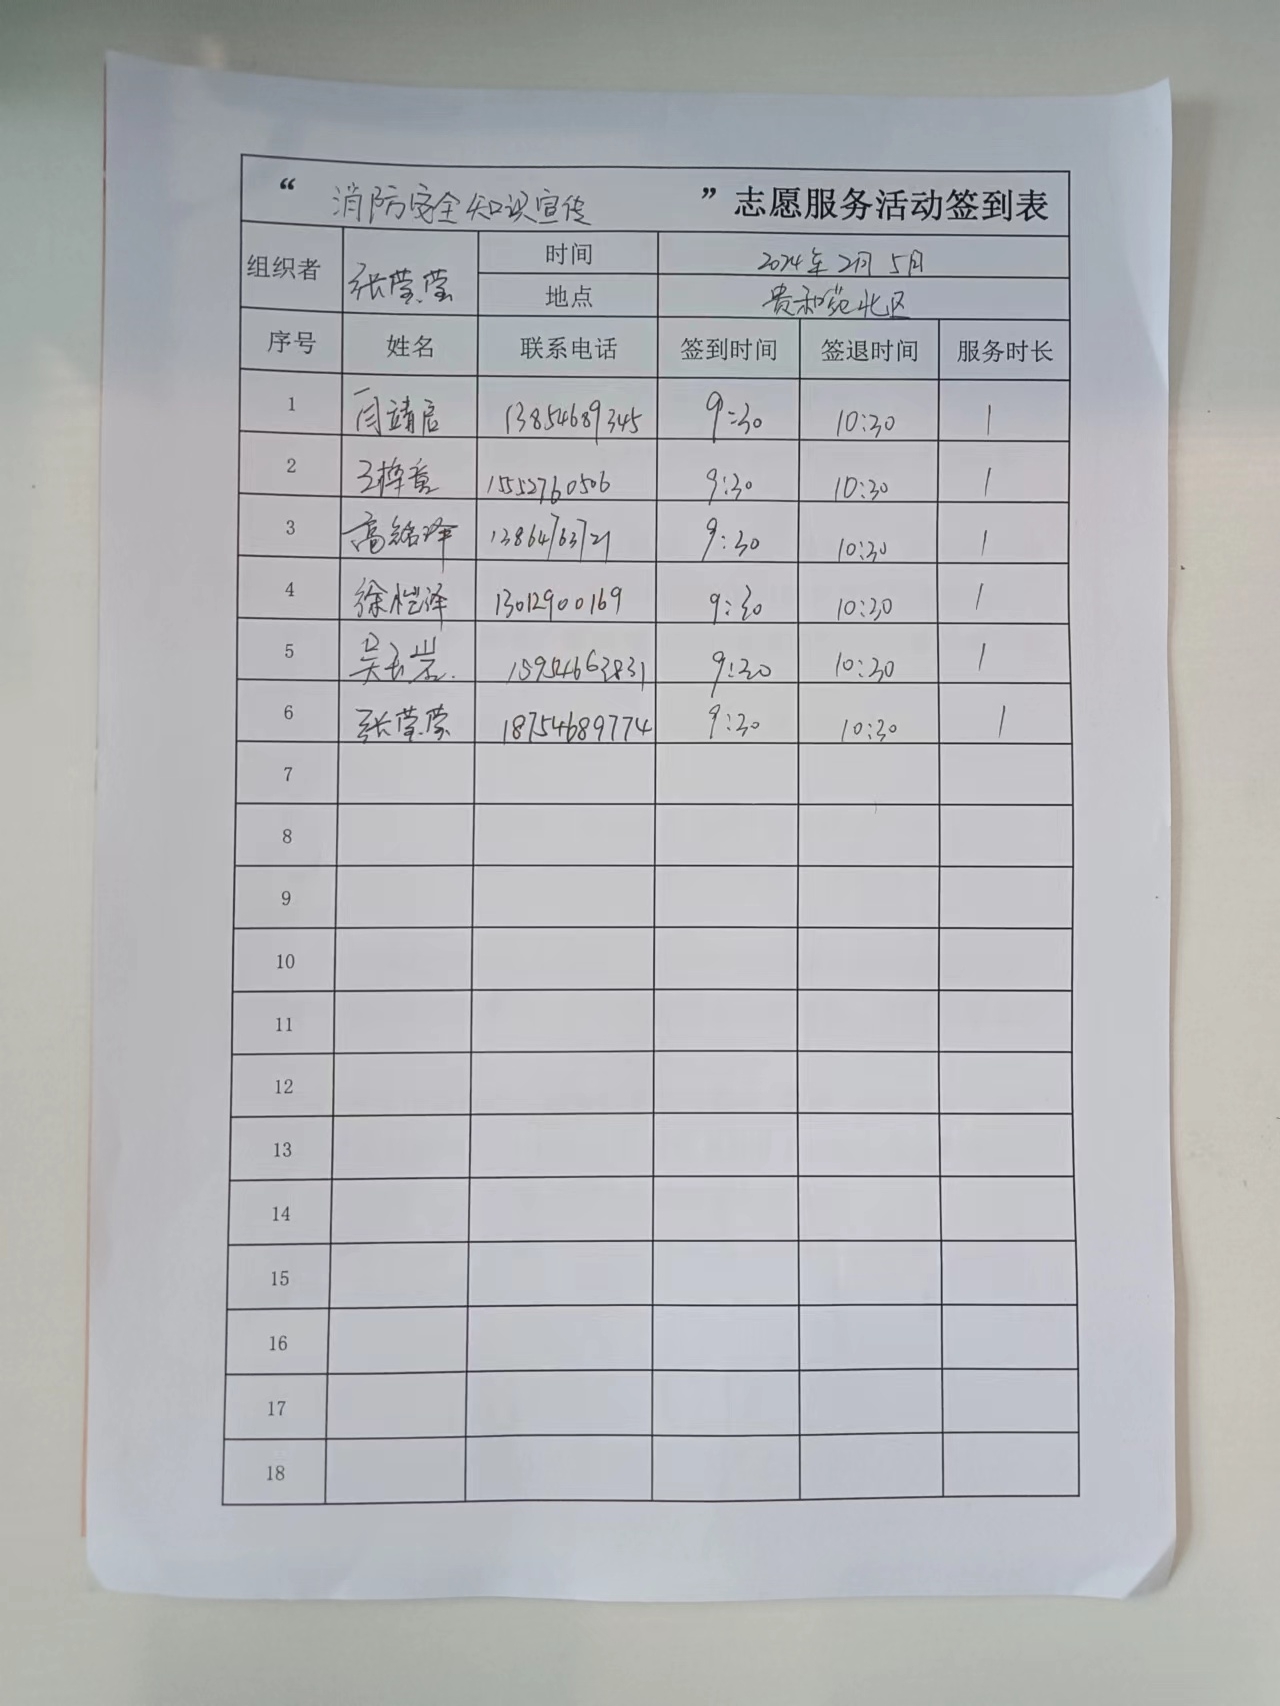 “ 消防安全知识宣传 ”志愿服务活动签到表
组织者 张莹莹 时间 2024年2月5日
地点 贵和苑北区
序号 姓名 联系电话 签到时间 签退时间 服务时长
1 闫靖启 13854689345 9:30 10:30 1
2 王梓童 15552760506 9:30 10:30 1
3 高铭泽 13864763721 9:30 10:30 1
4 徐恺泽 13012900169 9:30 10:30 1
5 吴玉岩 15954663831 9:30 10:30 1
6 张莹莹 18754689774 9:30 10:30 1
7
8
9
10
11
12
13
14
15
16
17
18